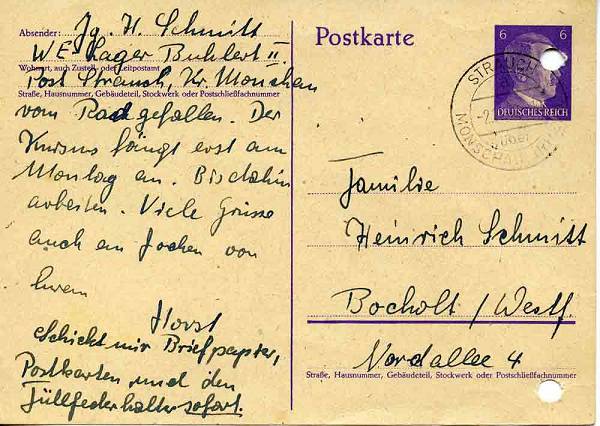 Absender: Jg. H. Schmitt
WE Lager Buhlert II.
Wohnort, auch Zustell- oder Leitpostamt
Post Strauch, Kr. Monschau
Straße, Hausnummer, Gebäudeteil, Stockwerk oder Postschließfachnummer
vom Rad gefallen. Der
Kursus fängt erst am
Montag an. Bis dahin
arbeiten. Viele Grüsse
auch an Jochen von
Horst
Schickt mir Briefpapier,
Postkarten und den
Füllfederhalter sofort.
Postkarte
6 6
DEUTSCHES REICH
STRAUCH
MONSCHAU
Familie
Heinrich Schmitt
Bocholt / Westf.
Nordallee 4
Straße, Hausnummer, Gebäudeteil, Stockwerk oder Postschließfachnummer